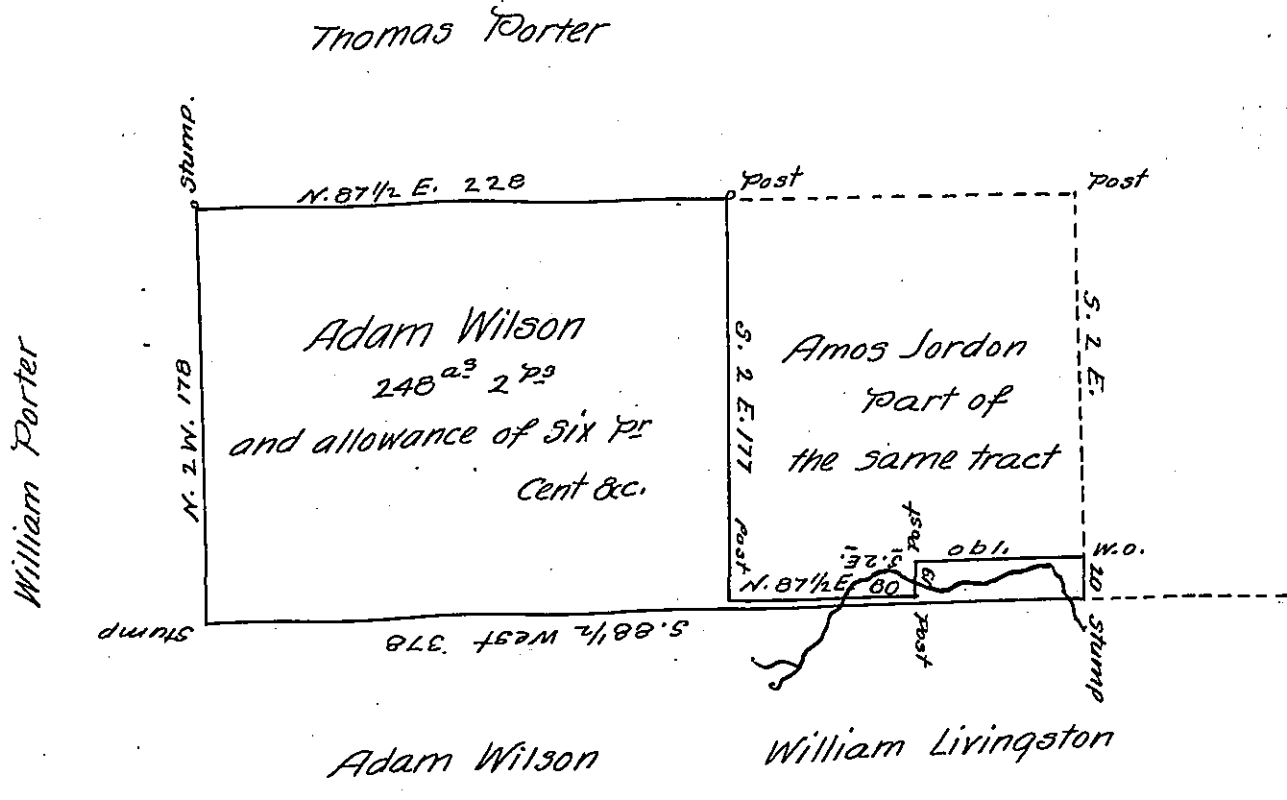 Thomas Porter
Stump.
N. 87 1/2 E. 228
Post
Post
William Porter
N. 2 W. 178
Adam Wilson
248 as 2 ps
and allowance of Six pr
Cent &c.
S. 2 E. 177
Amos Jordon
Part of
the same tract
S. 2 E.
Post
Post
obl.
W.O.
N. 87 1/2 E. 80
19
20
Stump
S. 88 1/2 West 378
Post
Stump
Adam Wilson
William Livingston